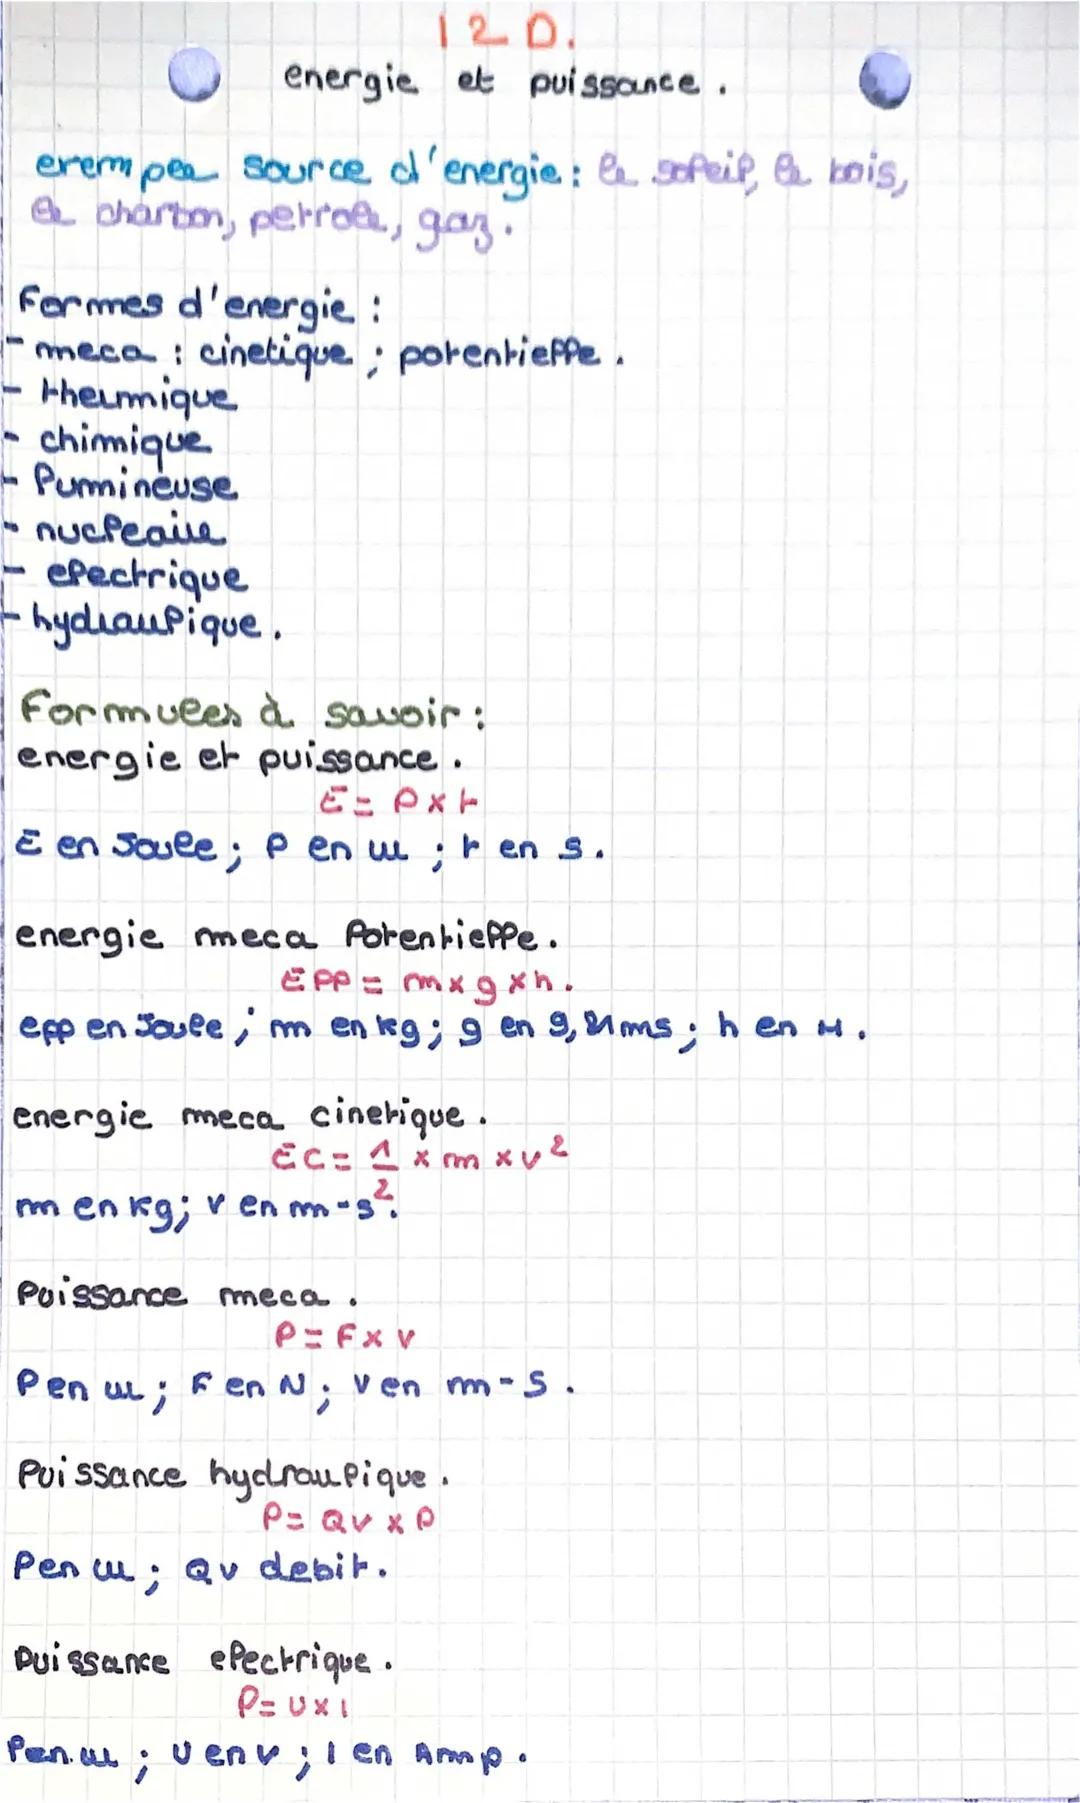 I2D.
energie et puissance.
exemples source d'energie : le soleil, le bois,
le charbon, petrole, gaz.
Formes d'energie :
- meca : cinetique ; potentielle.
- thermique
- chimique
- lumineuse
- nucleaire
- electrique
- hydraulique.
Formules à savoir :
energie et puissance.
E = P x t
E en Joule ; P en w ; t en s.
energie meca Potentielle.
EPP = m x g x h.
epp en Joule ; m en kg ; g en 9,81 ms ; h en M.
energie meca cinetique.
EC = 1/2 x m x v²
m en kg ; v en m-s².
Puissance meca.
P = F x v
P en w ; F en N ; v en m-s.
Puissance hydraulique.
P = Qv x p
P en w ; Qv debit.
Puissance electrique.
P = U x I
P en w ; U en v ; I en Amp.